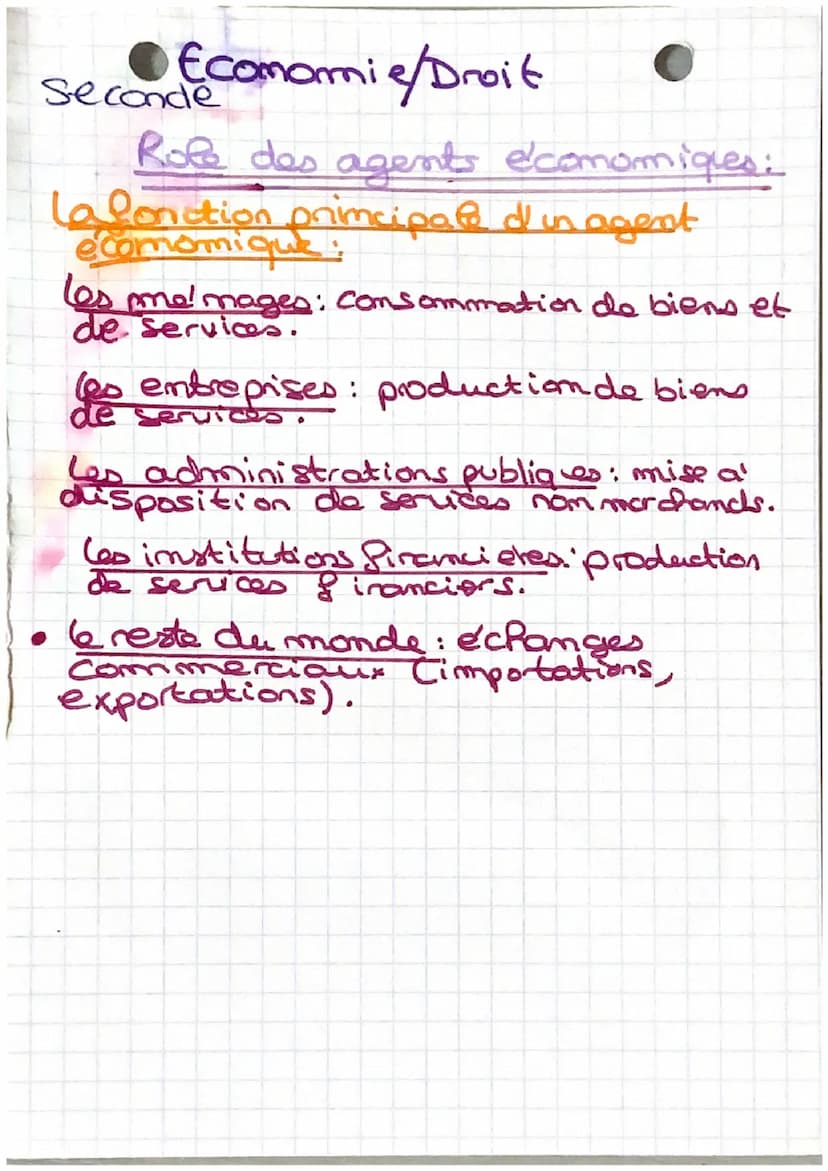 Economie/Droit
Seconde
Role des agents économiques:
La fonction principale d'un agent
économique:
Les ménages: consommation de biens et
de services.
Les entreprises: production de biens
de services.
Les administrations publiques: mise à
disposition de services non marchands.
Les institutions financieres: production
de services financiers.
• Le reste du monde: échanges
commerciaux (importations,
exportations).